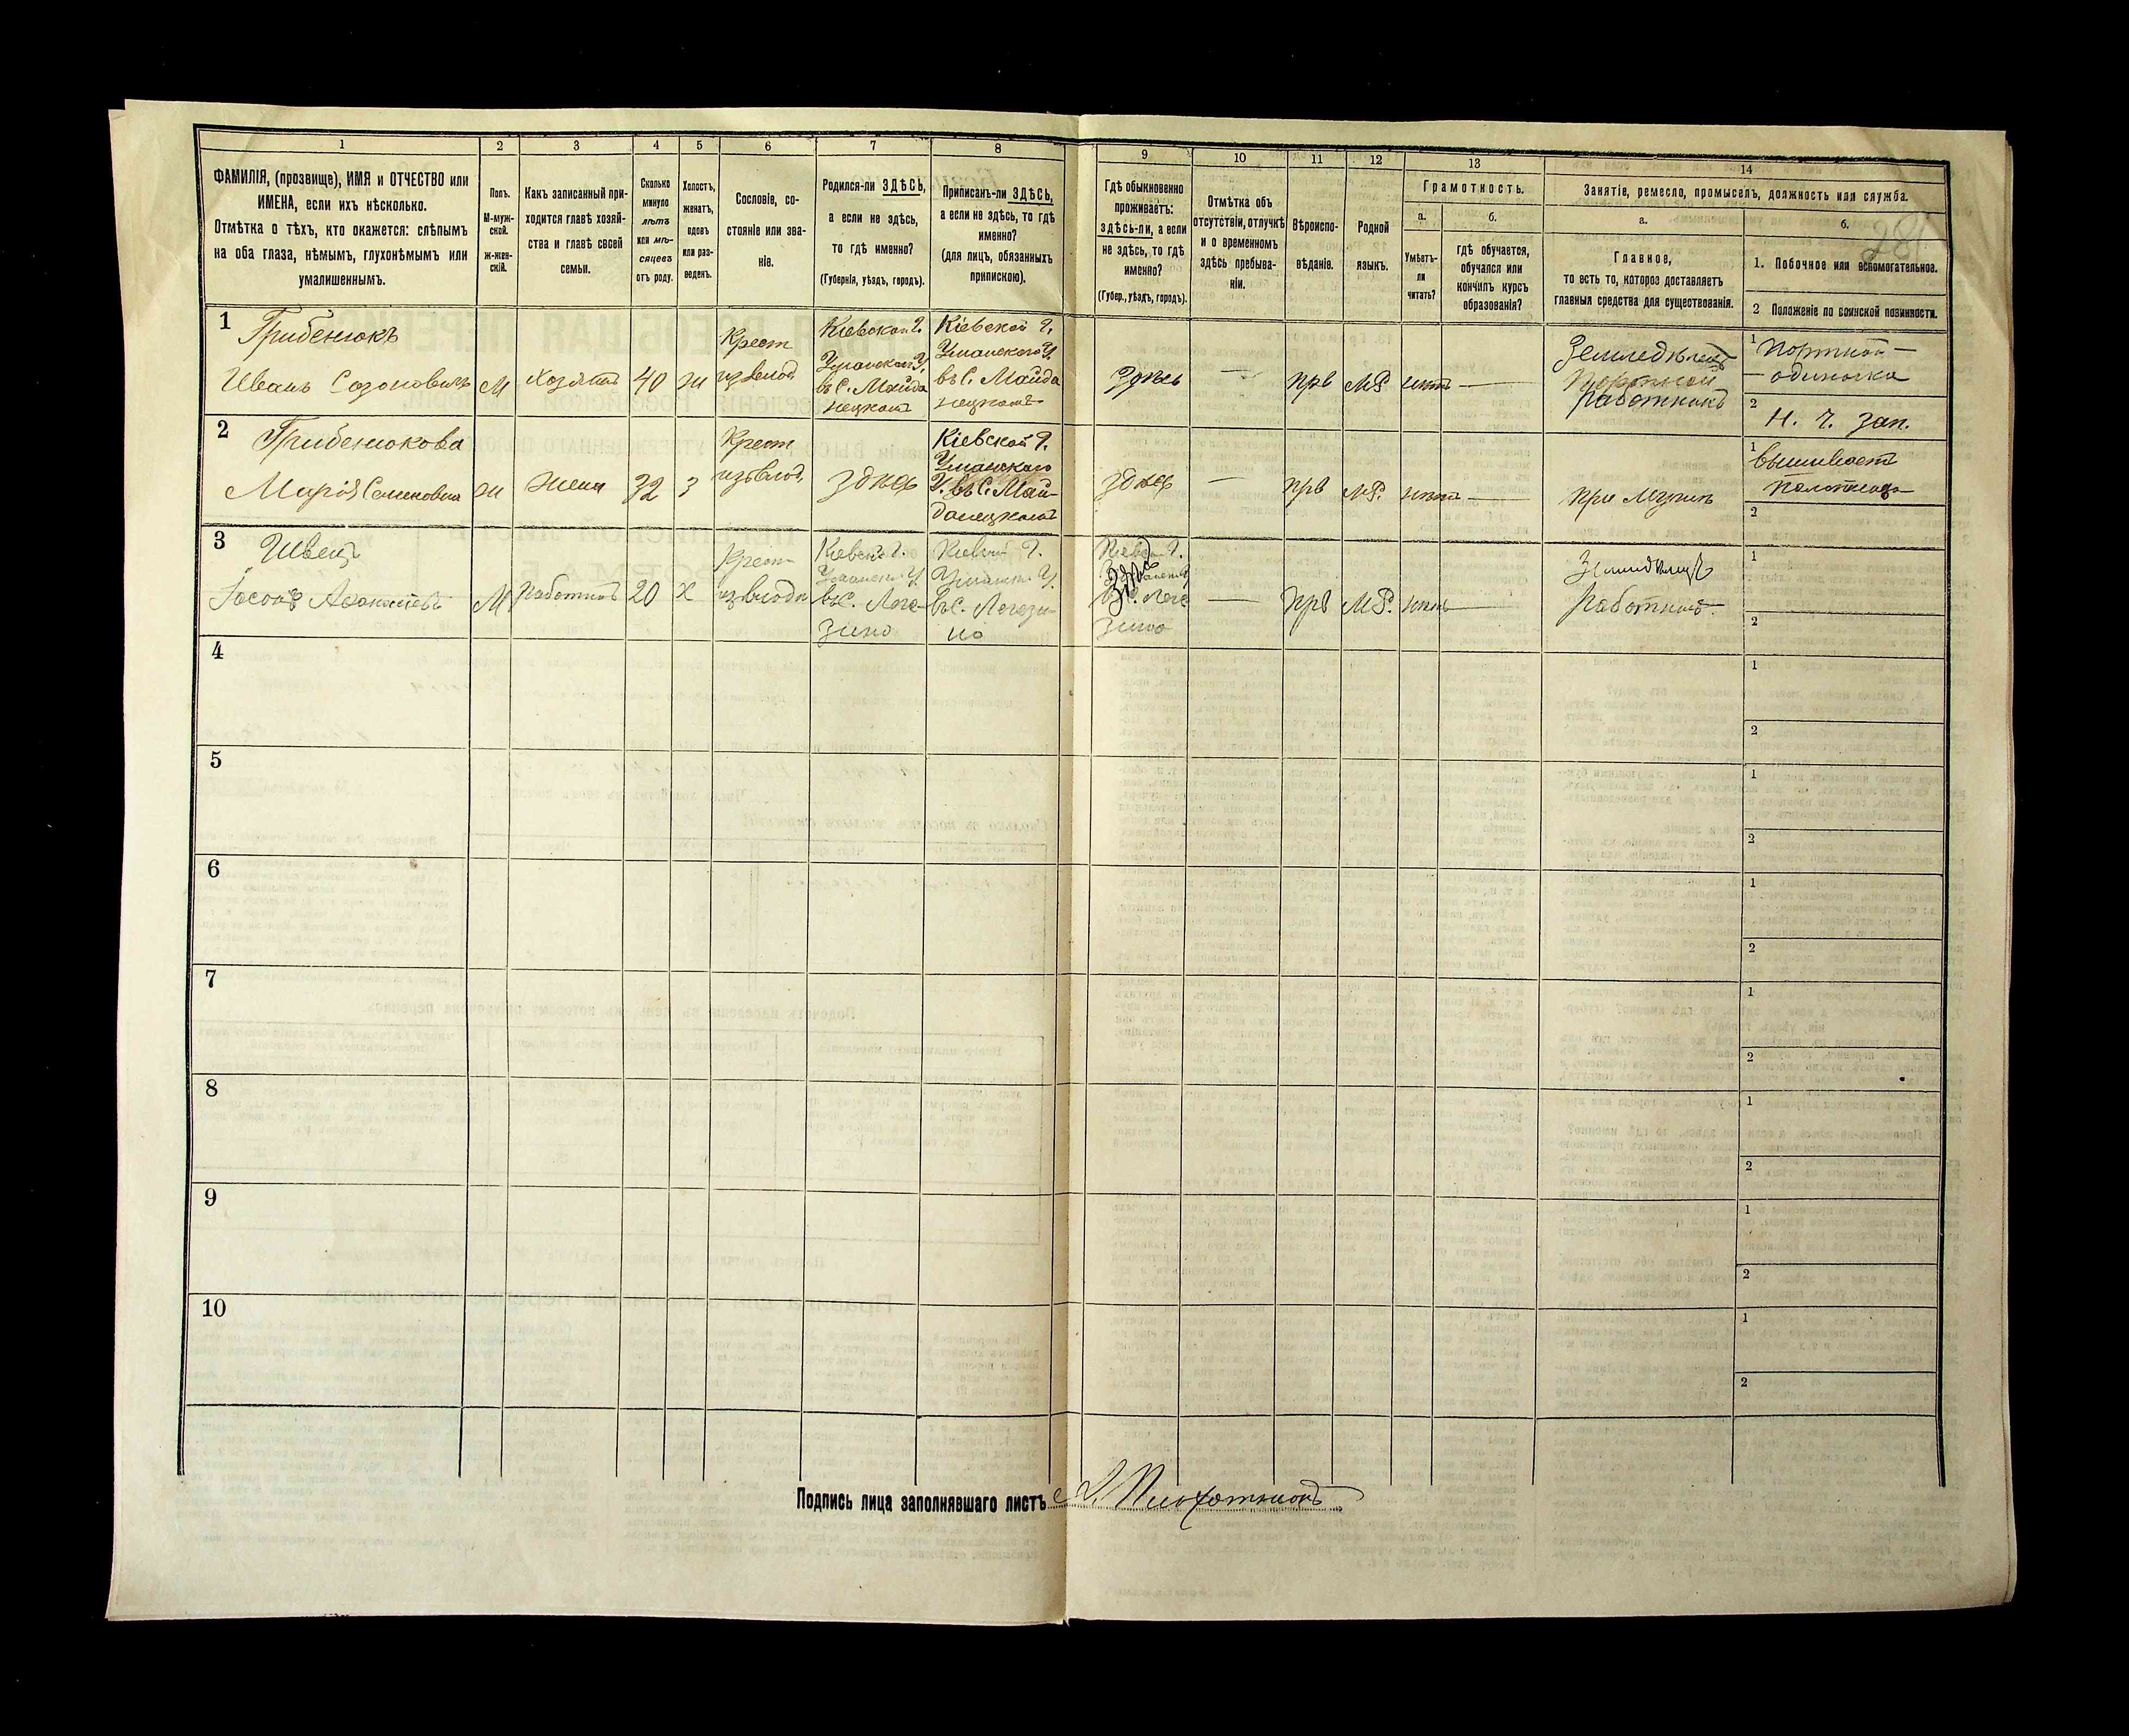 1
2
3
4
5
6
7
8
ФАМИЛІЯ, (прозвище), ИМЯ и ОТЧЕСТВО или
ИМЕНА, если ихъ нѣсколько.
Отмѣтка о тѣхъ, кто окажется: слѣпымъ
на оба глаза, нѣмымъ, глухонѣмымъ или
умалишеннымъ.
Полъ.
М-муж-
ской.
ж-жен-
скій.
Какъ записанный при-
ходится главѣ хозяй-
ства и главѣ своей
семьи.
Сколько
минуло
лѣтъ
или мѣ-
сяцевъ
отъ роду.
Холостъ,
женатъ,
вдовъ
или раз-
веденъ.
Сословіе, со-
стояніе или зва-
ніе.
Родился-ли ЗДѢСЬ,
а если не здѣсь,
то гдѣ именно?
(Губернія, уѣздъ, городъ).
Приписанъ-ли ЗДѢСЬ,
а если не здѣсь, то гдѣ
именно?
(для лицъ, обязанныхъ
припискою).
9
10
11
12
13
14
Гдѣ обыкновенно
проживаетъ:
здѣсь-ли, а если
не здѣсь, то гдѣ
именно?
(Губер., уѣздъ, городъ).
Отмѣтка объ
отсутствіи, отлучкѣ
и о временномъ
здѣсь пребыва-
ніи.
Вѣроиспо-
вѣданіе.
Родной
языкъ.
Грамотность.
а.
Умѣетъ-
ли
читать?
б.
Гдѣ обучается,
обучался или
кончилъ курсъ
образованія?
Занятіе, ремесло, промыселъ, должность или служба.
а.
Главное,
то есть то, которое доставляетъ
главныя средства для существованія.
б.
281
1. Побочное или вспомогательное.
2 Положеніе по воинской повинности.
1
Грибенюкъ
Иванъ Созоновичъ
М
хозяинъ
40
ж
Крест
из влад.
Кіевской г.
Уманскаго У.
въ С. Майда
нецкомъ
Кіевской г.
Уманскаго У.
въ С. Майда
нецкомъ
Здѣсь
прв
МР.
нѣтъ
Земледѣлецъ
Портной
работникъ
1
Портной —
одиночка
2
Н. Ч. зап.
2
Грибенюкова
Марія Семеновна
ж
жена
32
з
Крест
из влад.
здѣсь
Кіевской г.
Уманскаго
У. въ С. Май-
данецкомъ
здѣсь
прв
МР.
нѣтъ
при мужѣ
1
вышиваетъ
2
3
Швецъ
М
работникъ
20
х
Крест
из влад.
Кіевск. г.
Уманск. У.
въ С. Леге-
зино
Кіевск. г.
Уманск. У.
въ С. Легези-
но
Кіевск. г.
Уманск. У.
Здѣсь
въ С. Леге
зино
прв
МР.
нѣтъ
Земледѣлецъ
работникъ.
1
2
4
1
2
5
1
2
6
1
2
7
1
2
8
1
2
9
1
2
10
1
2
Подпись лица заполнявшаго листъ